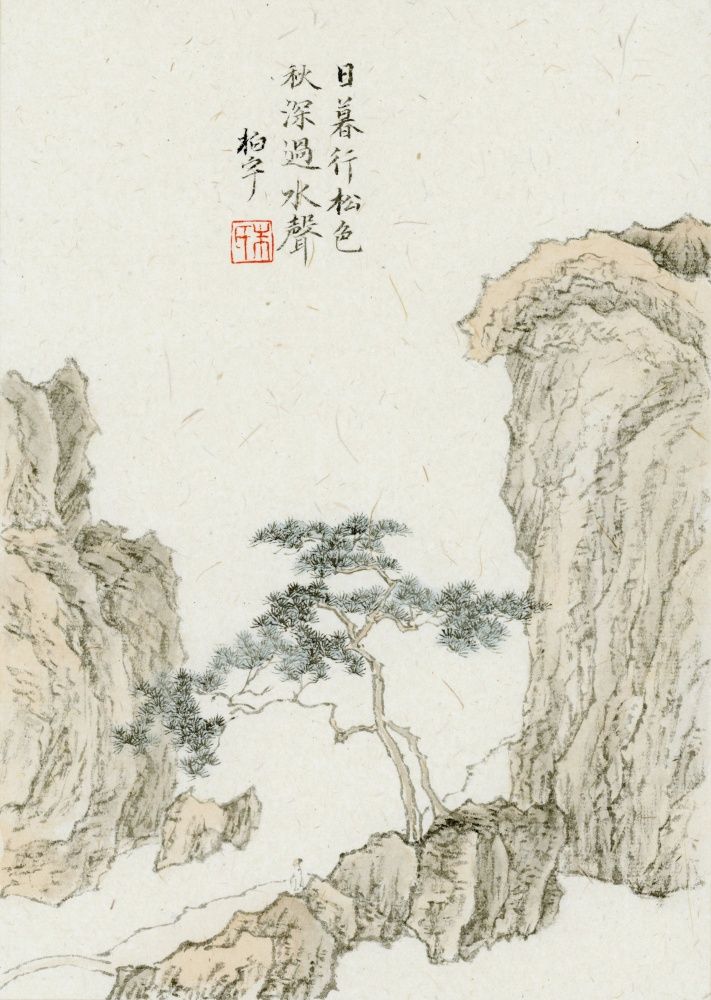 日暮行松色
秋深過水聲
柏宇